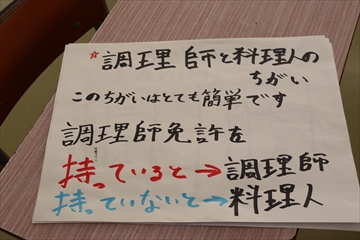 ☆調理師と料理人の
ちがい
このちがいはとても簡単です
調理師免許を
持っていると→調理師
持っていないと→料理人